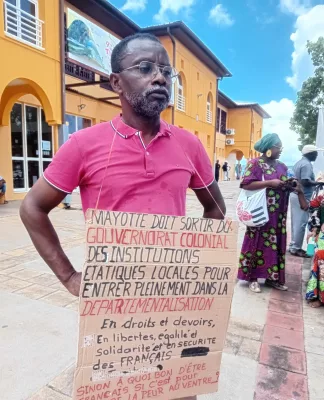 MAYOTTE DOIT SORTIR DU
GOUVERNORAT COLONIAL
DES INSTITUTIONS
ETATIQUES LOCALES POUR
ENTRER PLEINEMENT DANS LA
DEPARTEMENTALISATION
En droits et devoirs,
En libertes, égalité et
Solidarité et en SECURITE
des FRANÇAIS
SINON À QUOI BON D'ÊTRE
FRANÇAIS SI C'EST POUR
LA PEUR AU VENTRE